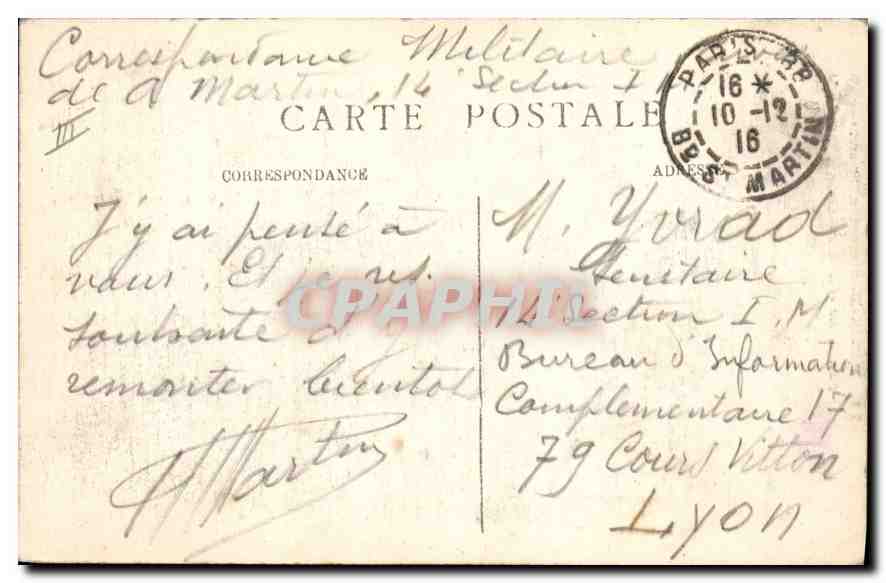 Correspondance Militaire
de A Martin, 14 Section I
III
CARTE POSTALE
CORRESPONDANCE
ADRESSE
PARIS RP
16 *
10 -12
16
BD ST MARTIN
J'y ai pensé à
vous. Et je
souhaite d'y
remonter bientot
AMartin
M. Yvrad
Secrétaire
14 Section I. M
Bureau d'Information
Complémentaire 17
79 Cours Vitton
Lyon
CPAPHIL